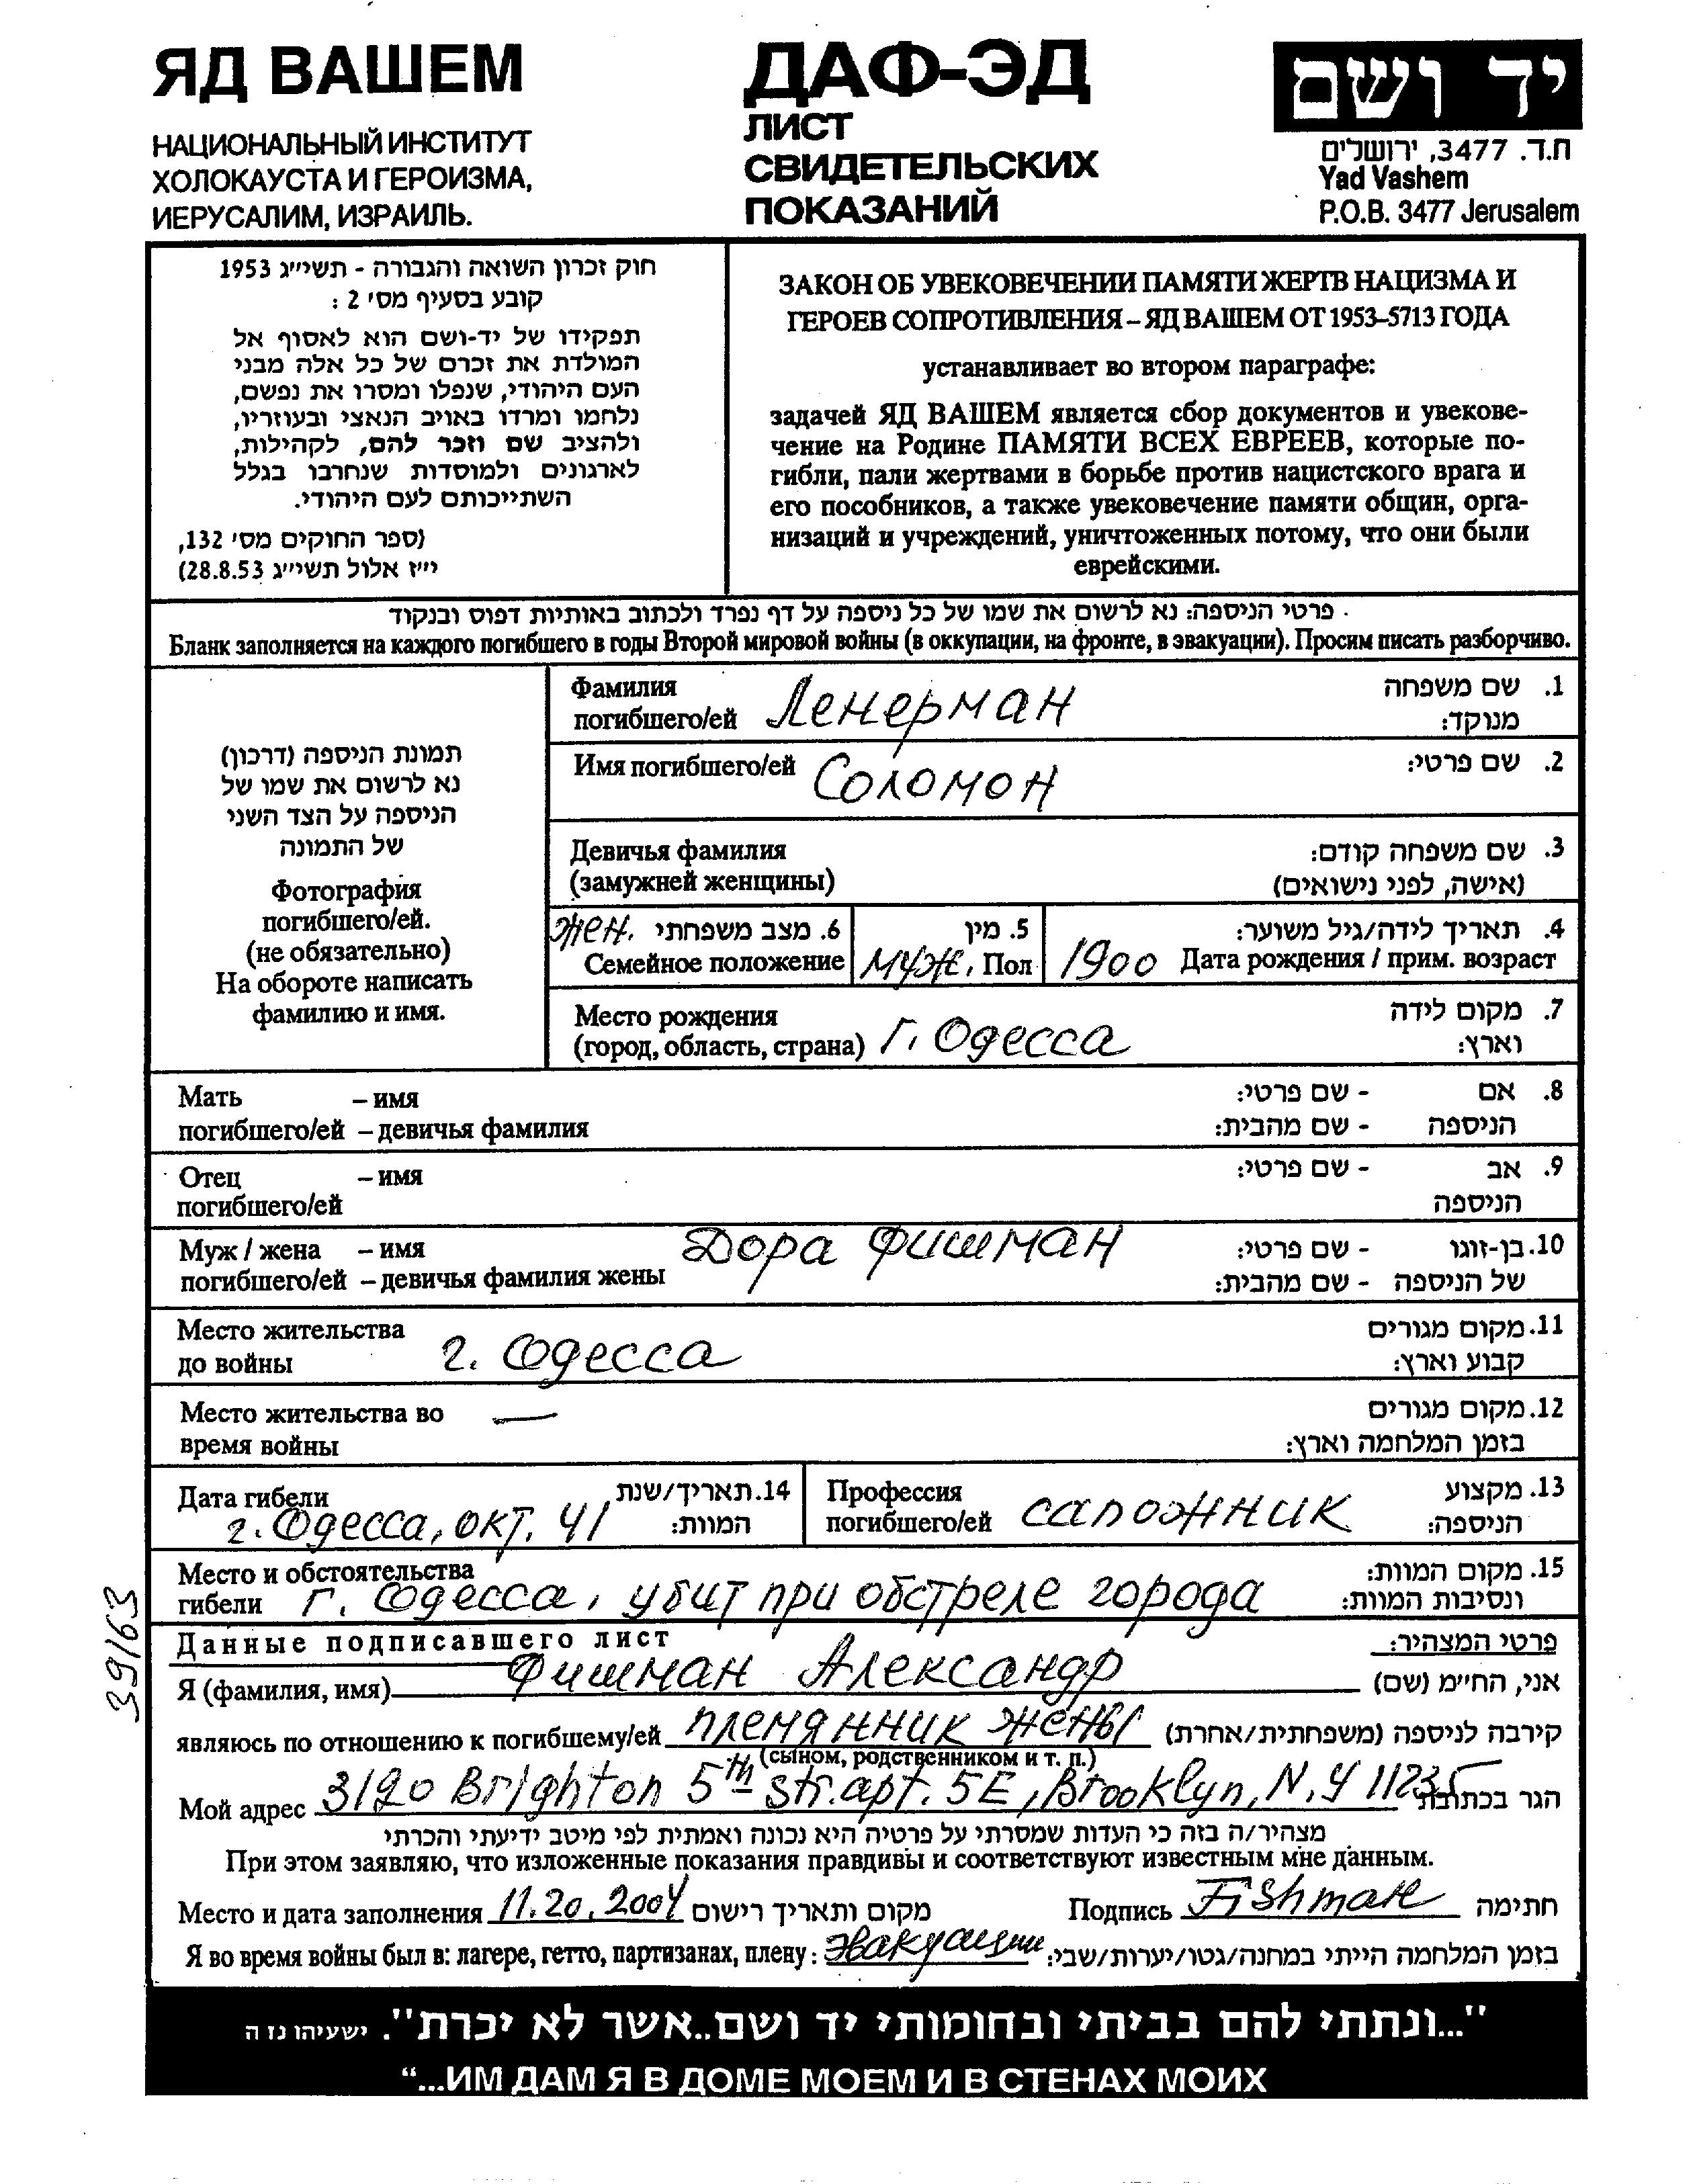 ЯД ВАШЕМ
НАЦИОНАЛЬНЫЙ ИНСТИТУТ
ХОЛОКАУСТА И ГЕРОИЗМА,
ИЕРУСАЛИМ, ИЗРАИЛЬ.
ДАФ-ЭД
ЛИСТ
СВИДЕТЕЛЬСКИХ
ПОКАЗАНИЙ
יד ושם
ת.ד. 3477, ירושלים
Yad Vashem
P.O.B. 3477 Jerusalem
חוק זכרון השואה והגבורה - תשי״ג 1953
קובע בסעיף מס׳ 2 :
תפקידו של יד-ושם הוא לאסוף אל
המולדת את זכרם של כל אלה מבני
העם היהודי, שנפלו ומסרו את נפשם,
נלחמו ומרדו באויב הנאצי ובעוזריו,
ולהציב שם וזכר להם, לקהילות,
לארגונים ולמוסדות שנחרבו בגלל
השתייכותם לעם היהודי.
(ספר החוקים מס׳ 132,
י״ז אלול תשי״ג 28.8.53)
ЗАКОН ОБ УВЕКОВЕЧЕНИИ ПАМЯТИ ЖЕРТВ НАЦИЗМА И
ГЕРОЕВ СОПРОТИВЛЕНИЯ – ЯД ВАШЕМ ОТ 1953–5713 ГОДА
устанавливает во втором параграфе:
задачей ЯД ВАШЕМ является сбор документов и увекове-
чение на Родине ПАМЯТИ ВСЕХ ЕВРЕЕВ, которые по-
гибли, пали жертвами в борьбе против нацистского врага и
его пособников, а также увековечение памяти общин, орга-
низаций и учреждений, уничтоженных потому, что они были
еврейскими.
פרטי הניספה: נא לרשום את שמו של כל ניספה על דף נפרד ולכתוב באותיות דפוס ובנקוד
Бланк заполняется на каждого погибшего в годы Второй мировой войны (в оккупации, на фронте, в эвакуации). Просим писать разборчиво.
תמונת הניספה (דרכון)
נא לרשום את שמו של
הניספה על הצד השני
של התמונה
Фотография
погибшего/ей.
(не обязательно)
На обороте написать
фамилию и имя.
Фамилия 1. שם משפחה
погибшего/ей Ленерман מנוקד:
Имя погибшего/ей Соломон 2. שם פרטי:
Девичья фамилия 3. שם משפחה קודם:
(замужней женщины) (אישה, לפני נישואים)
жен. 6. מצב משפחתי 5. מין 4. תאריך לידה/גיל משוער:
Семейное положение муж. Пол 1900 Дата рождения / прим. возраст
Место рождения 7. מקום לידה
(город, область, страна) г. Одесса וארץ:
Мать – имя 8. אם - שם פרטי:
погибшего/ей – девичья фамилия הניספה - שם מהבית:
Отец – имя 9. אב - שם פרטי:
погибшего/ей הניספה
Муж / жена – имя Дора Фишман 10. בן-זוגו - שם פרטי:
погибшего/ей – девичья фамилия жены של הניספה - שם מהבית:
Место жительства 11. מקום מגורים
до войны г. Одесса קבוע וארץ:
Место жительства во — 12. מקום מגורים
время войны בזמן המלחמה וארץ:
Дата гибели 14. תאריך/שנת Профессия 13. מקצוע
г. Одесса, окт. 41 המוות: погибшего/ей сапожник הניספה:
Место и обстоятельства 15. מקום המוות:
гибели г. Одесса, убит при обстреле города ונסיבות המוות:
Данные подписавшего лист פרטי המצהיר:
Я (фамилия, имя) Фишман Александр אני, החי״מ (שם)
являюсь по отношению к погибшему/ей племянник жены קירבה לניספה (משפחתית/אחרת)
(сыном, родственником и т. п.)
Мой адрес 3120 Brighton 5th str. apt. 5E, Brooklyn, N.Y 11235 הגר בכתובת
מצהיר/ה בזה כי העדות שמסרתי על פרטיה היא נכונה ואמתית לפי מיטב ידיעתי והכרתי
При этом заявляю, что изложенные показания правдивы и соответствуют известным мне данным.
Место и дата заполнения 11.20.2004 מקום ותאריך רישום Подпись Fishman חתימה
Я во время войны был в: лагере, гетто, партизанах, плену: эвакуации בזמן המלחמה הייתי במחנה/גטו/יערות/שבי:
39163
"...ונתתי להם בביתי ובחומותי יד ושם..אשר לא יכרת". ישעיהו נז ה
“...ИМ ДАМ Я В ДОМЕ МОЕМ И В СТЕНАХ МОИХ